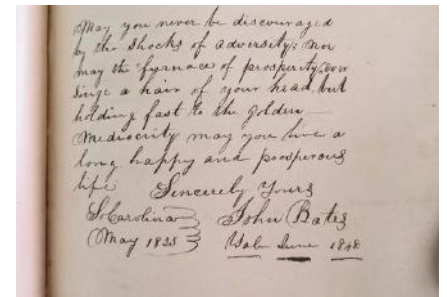 May you never be discouraged
by the shocks of adversity; nor
may the furnace of prosperity ever
singe a hair of your head but
holding fast to the golden
mediocrity may you live a
long happy and prosperous
life Sincerely Yours
So Carolina John Bates
May 1825 Yale June 1848